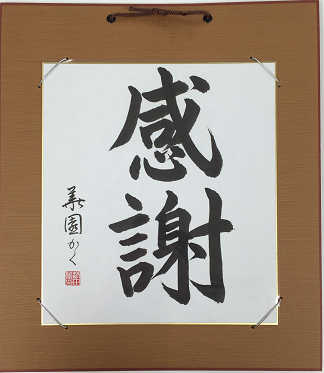 感謝
華園かく